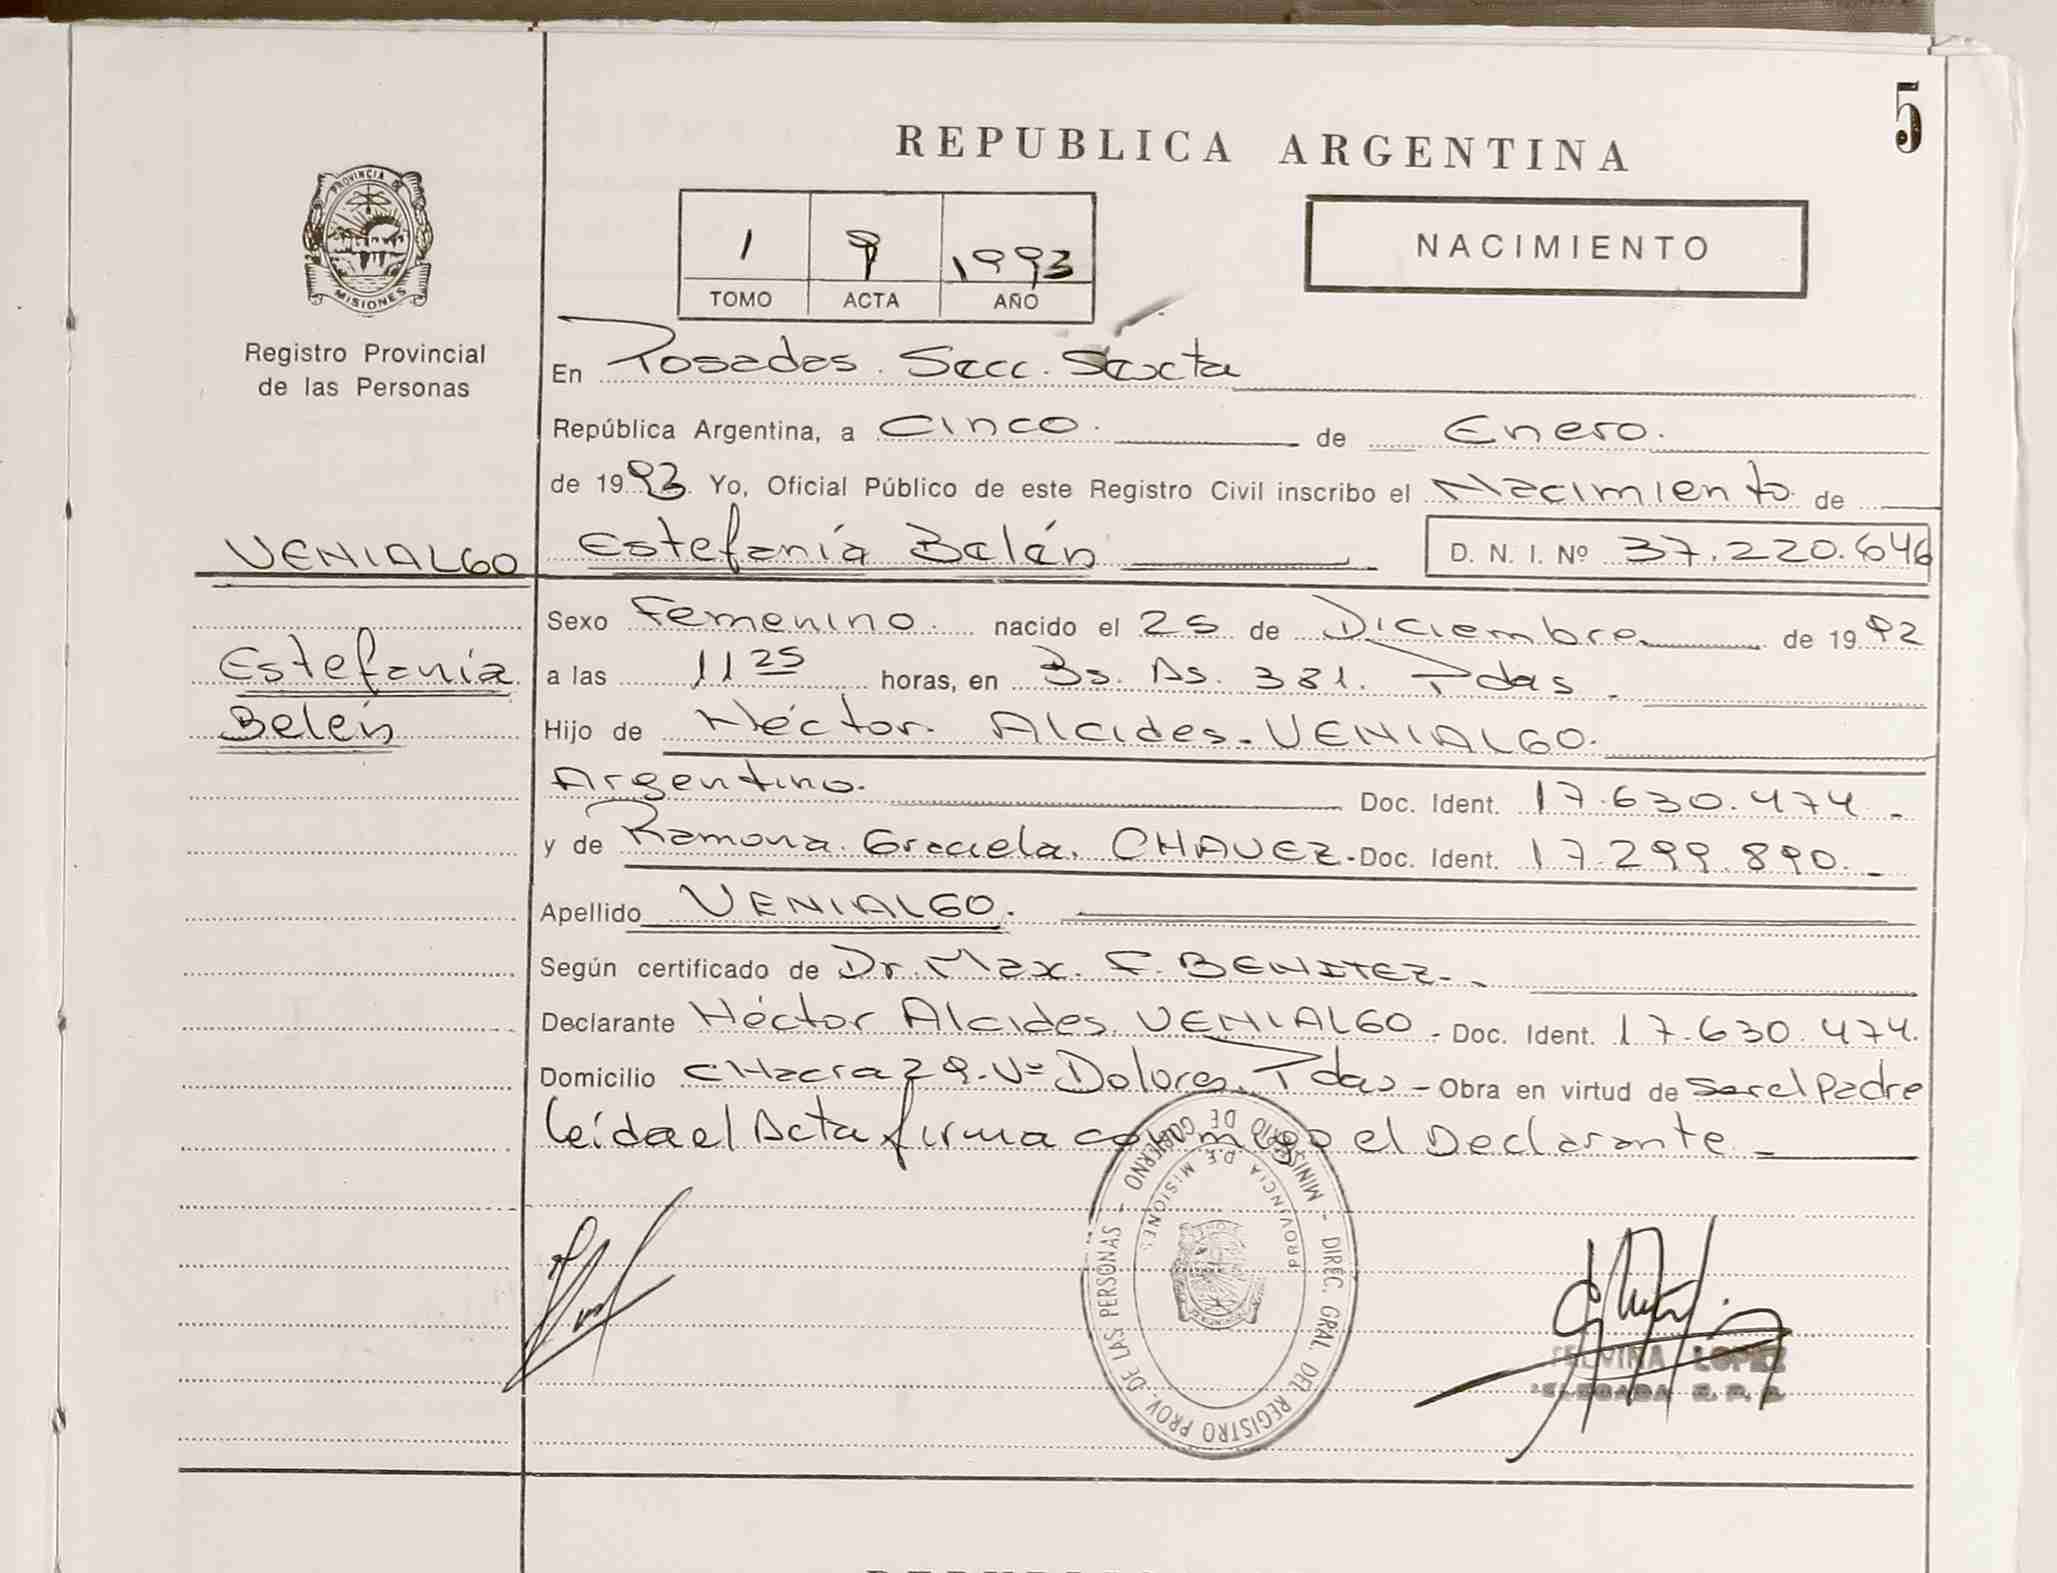 5
REPUBLICA ARGENTINA
PROVINCIA DE
MISIONES
Registro Provincial
de las Personas
1 9 1993
TOMO ACTA AÑO
NACIMIENTO
En Posadas. Secc. Sexta
República Argentina, a Cinco. de Enero.
de 1993. Yo, Oficial Público de este Registro Civil inscribo el Nacimiento de
VENIALGO Estefanía Belén D. N. I. Nº 37.220.646
Sexo Femenino. nacido el 25 de Diciembre de 1992
Estefanía
Belén
a las 11 25 horas, en Bs. As. 381. Pdas.
Hijo de Héctor Alcides. VENIALGO.
Argentino. Doc. Ident. 17.630.474.
y de Ramona Graciela. CHAVEZ. Doc. Ident. 17.299.890.
Apellido VENIALGO.
Según certificado de Dr. Max. F. BENITEZ.
Declarante Héctor Alcides VENIALGO. Doc. Ident. 17.630.474.
Domicilio CHacra 29. Vº Dolores. Pdas. Obra en virtud de Ser el Padre
leída el Acta firma conmigo el Declarante.
MINISTERIO DE GOBIERNO - DIREC. GRAL. DEL REGISTRO PROV. DE LAS PERSONAS -
PROVINCIA DE MISIONES
LOPEZ